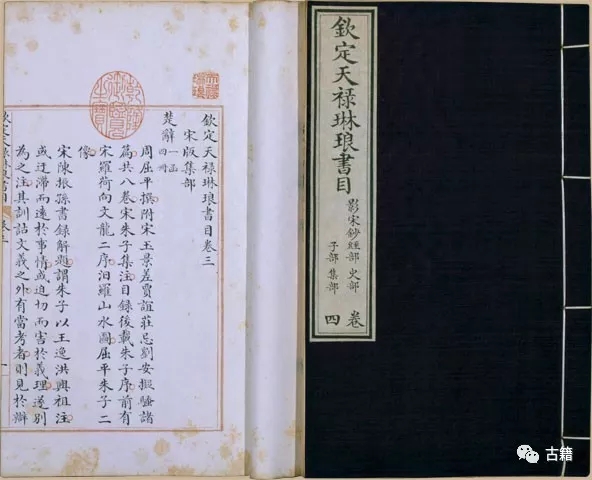 欽定天禄琳琅書目
影宋鈔經部 史部
子部 集部
卷四
欽定天禄琳琅書目卷三
宋版集部
楚辭 一函四冊
周屈平撰附宋玉景差賈誼莊忌劉安擬騷諸
篇共八卷宋朱子集注目錄後載朱子序前有
宋羅荷向文龍二序汨羅山水圖屈平朱子二
像
宋陳振孫書錄解題謂朱子以王逸洪興祖注
或迂滯而遠於事情或迫切而害於義理遂別
為之注其訓詁文義之外有當考者則見於辯
古籍